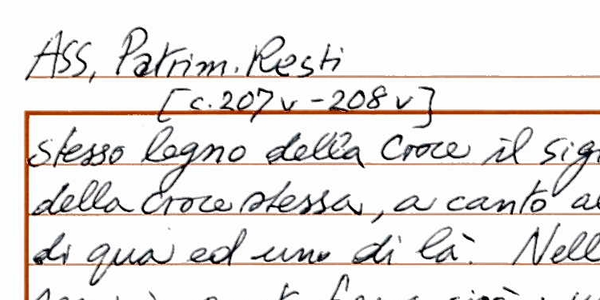 Ass, Patrim. Resti
[c. 207v - 208v]
stesso legno della Croce il sig
della Croce stessa, a canto a
di qua ed uno di là. Nell